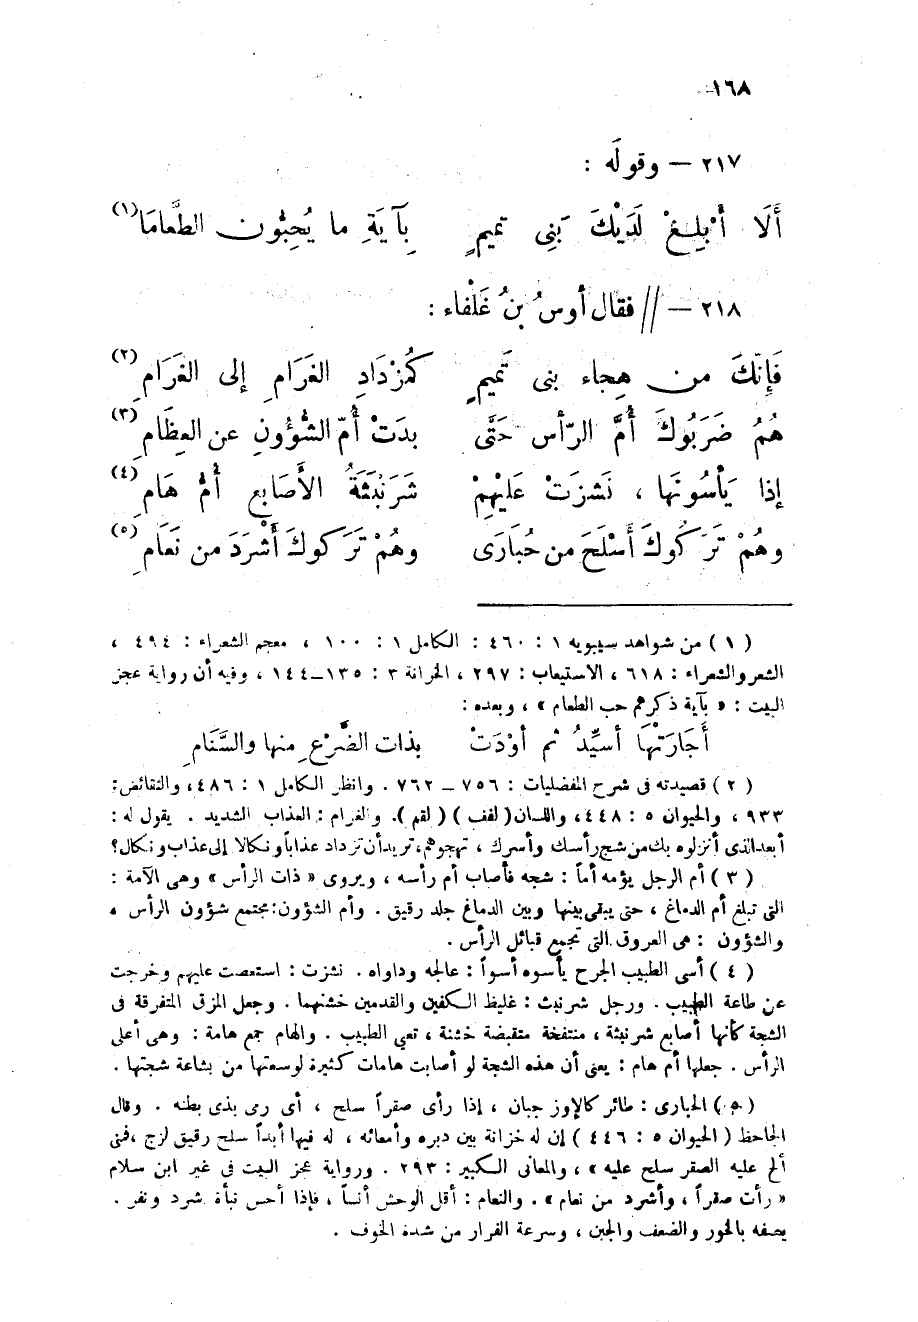 ١٦٨
٢١٧ — وقولَه :
أَلَا أَبْلِغْ لَدَيْكَ بَنِى تميمٍ بِآيَةِ ما يُحِبُّون الطَّعامَا(١)
٢١٨ — // فقال أوسُ بنُ غَلْفاء :
فَإِنَّكَ من هِجاء بنى تَمِيمٍ كَمُزْدَادِ الغَرَامِ إلى الغَرَامِ(٢)
هُمُ ضَرَبُوكَ أُمَّ الرّأس حَتَّى بدَتْ أُمّ الشُّؤُونِ عن العِظَامِ(٣)
إذا يَأْسُونَها ، نَشزَتْ عَلَيْهِمْ شَرَنْبَثَةُ الأَصَابِعِ أُمُّ هَامِ(٤)
وهُمْ تَرَكُوكَ أَسْلَحَ من حُبَارَى وهُمْ تَرَكوكَ أَشْرَدَ من نَعَامِ(٥)
(١) من شواهد سيبويه ١ : ٤٦٠ : الكامل ١ : ١٠٠ ، معجم الشعراء : ٤٩٤ ،
الشعر والشعراء : ٦١٨ ، الاستيعاب : ٢٩٧ ، الخزانة ٣ : ١٣٥–١٤٤ ، وفيه أن رواية عجز
البيت : « بآية ذكرهم حب الطعام » ، وبعده :
أَجَارَتْهَا أسيِّدُ ثم أوْدَتْ بذات الضَّرْعِ منها والسَّنَامِ
(٢) قصيدته فى شرح المفضليات : ٧٥٦ – ٧٦٢ . وانظر الكامل ١ : ٤٨٦، والنقائض:
٩٣٣ ، والحيوان ٥ : ٤٤٨، واللسان (لفف) (لقم). والغرام : العذاب الشديد . يقول له :
أبعد الذى أنزلوه بك من شج رأسك وأسرك ، تهجوهم، تريد أن تزداد عذاباً ونكالا إلى عذاب ونكال؟
(٣) أم الرجل يؤمه أماً : شجه فأصاب أم رأسه ، ويروى « ذات الرأس » وهى الآمة :
التى تبلغ أم الدماغ ، حتى يبقى بينها وبين الدماغ جلد رقيق . وأم الشؤون: مجتمع شؤون الرأس ،
والشؤون : هى العروق التى تجمع قبائل الرأس .
(٤) أسى الطبيب الجرح يأسوه أسواً : عالجه وداواه . نشزت : استعصت عليهم وخرجت
عن طاعة الطبيب . ورجل شرنبث : غليظ الكفين والقدمين خشنهما . وجعل المزق المتفرقة فى
الشجة كأنها أصابع شرنبثة ، منتفخة متقبضة خشنة ، تعي الطبيب . والهام جمع هامة : وهى أعلى
الرأس . جعلها أم هام : يعنى أن هذه الشجة لو أصابت هامات كثيرة لوسعتها من بشاعة شجتها .
(٥) الحبارى : طائر كالإوز جبان ، إذا رأى صقراً سلح ، أى رمى بذى بطنه . وقال
الجاحظ (الحيوان ٥ : ٤٤٦) إن له خزانة بين دبره وأمعائه ، له فيها أبداً سلح رقيق لزج ، فمتى
ألح عليه الصقر سلح عليه » ، والمعانى الكبير : ٢٩٣ . ورواية عجز البيت فى غير ابن سلام
« رأت صقراً ، وأشرد من نعام » . والنعام : أقل الوحش أنساً ، فإذا أحس نبأة شرد ونفر .
يصفه بالخور والضعف والجبن ، وسرعة الفرار من شدة الخوف .